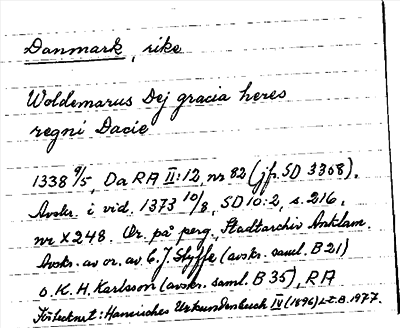 Danmark, rike
Woldemarus Dej gracia heres
regni Dacie
1338 9/5, Da RA II:12, nr 82 (jfr. SD 3368).
Avskr. i vid. 1373 10/8, SD 10:2, s. 216,
nr X248. Or. på perg. Stadtarchiv Anklam.
Avskr. av or. av C. J. Styffe (avskr. saml. B 21)
o. K. H. Karlsson (avskr. saml. B 35), RA
Förtecknat: Hansisches Urkundenbuch IV (1896) L.T.B. 1977.